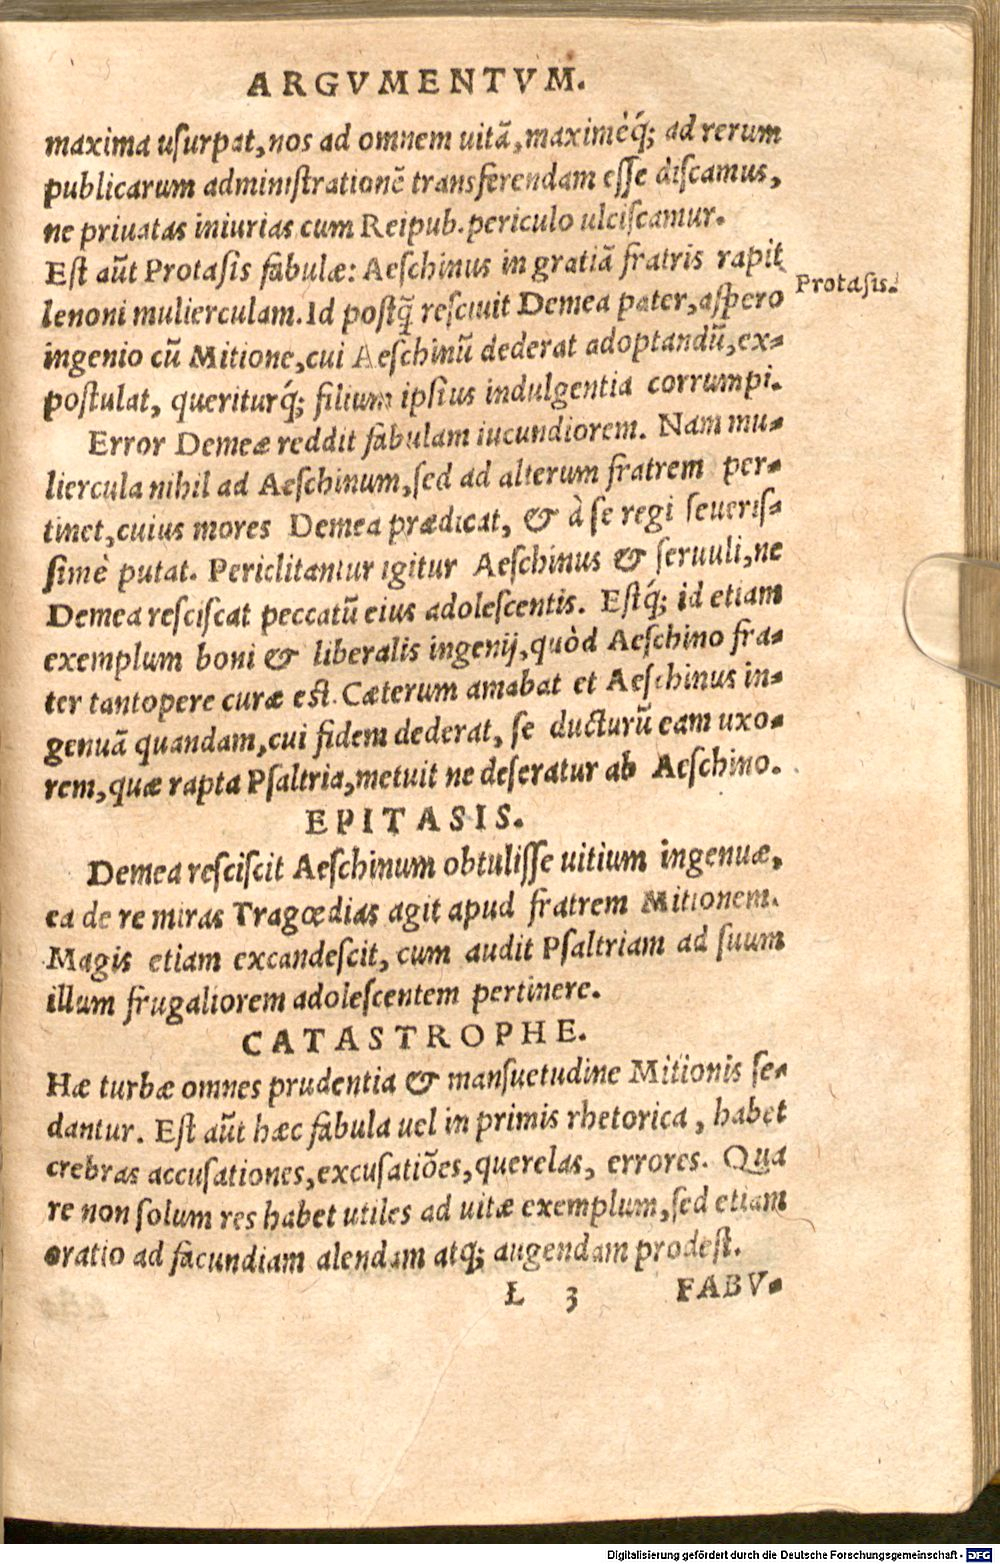 ARGVMENTVM.
maxima uſurpat, nos ad omnem uitã, maximèq́; ad rerum
publicarum adminiſtrationẽ transferendam eſſe diſcamus,
ne priuatas iniurias cum Reipub. periculo ulciſcamur.
Eſt aũt Protaſis fabulæ: Aeſchinus in gratiã fratris rapit
Protaſis.
lenoni mulierculam. Id poſtq̃ reſciuit Demea pater, aſpero
ingenio cũ Mitione, cui Aeſchinũ dederat adoptandũ, ex-
poſtulat, queriturq́; filium ipſius indulgentia corrumpi.
Error Demeæ reddit fabulam iucundiorem. Nam mu-
liercula nihil ad Aeſchinum, ſed ad alterum fratrem per-
tinet, cuius mores Demea prædicat, & à ſe regi ſeueriſ-
ſimè putat. Periclitantur igitur Aeſchinus & ſeruuli, ne
Demea reſciſcat peccatũ eius adoleſcentis. Eſtq́; id etiam
exemplum boni & liberalis ingenij, quòd Aeſchino fra-
ter tantopere curæ eſt. Cæterum amabat et Aeſchinus in-
genuã quandam, cui fidem dederat, ſe ducturũ eam uxo-
rem, quæ rapta Pſaltria, metuit ne deſeratur ab Aeſchino.
EPITASIS.
Demea reſciſcit Aeſchinum obtuliſſe uitium ingenuæ,
ea de re miras Tragœdias agit apud fratrem Mitionem.
Magis etiam excandeſcit, cum audit Pſaltriam ad ſuum
illum frugaliorem adoleſcentem pertinere.
CATASTROPHE.
Hæ turbæ omnes prudentia & manſuetudine Mitionis ſe-
dantur. Eſt aũt hæc fabula uel in primis rhetorica, habet
crebras accuſationes, excuſatiões, querelas, errores. Qua
re non ſolum res habet utiles ad uitæ exemplum, ſed etiam
oratio ad facundiam alendam atq; augendam prodeſt.
L 3 FABV-
Digitalisierung gefördert durch die Deutsche Forschungsgemeinschaft - DFG